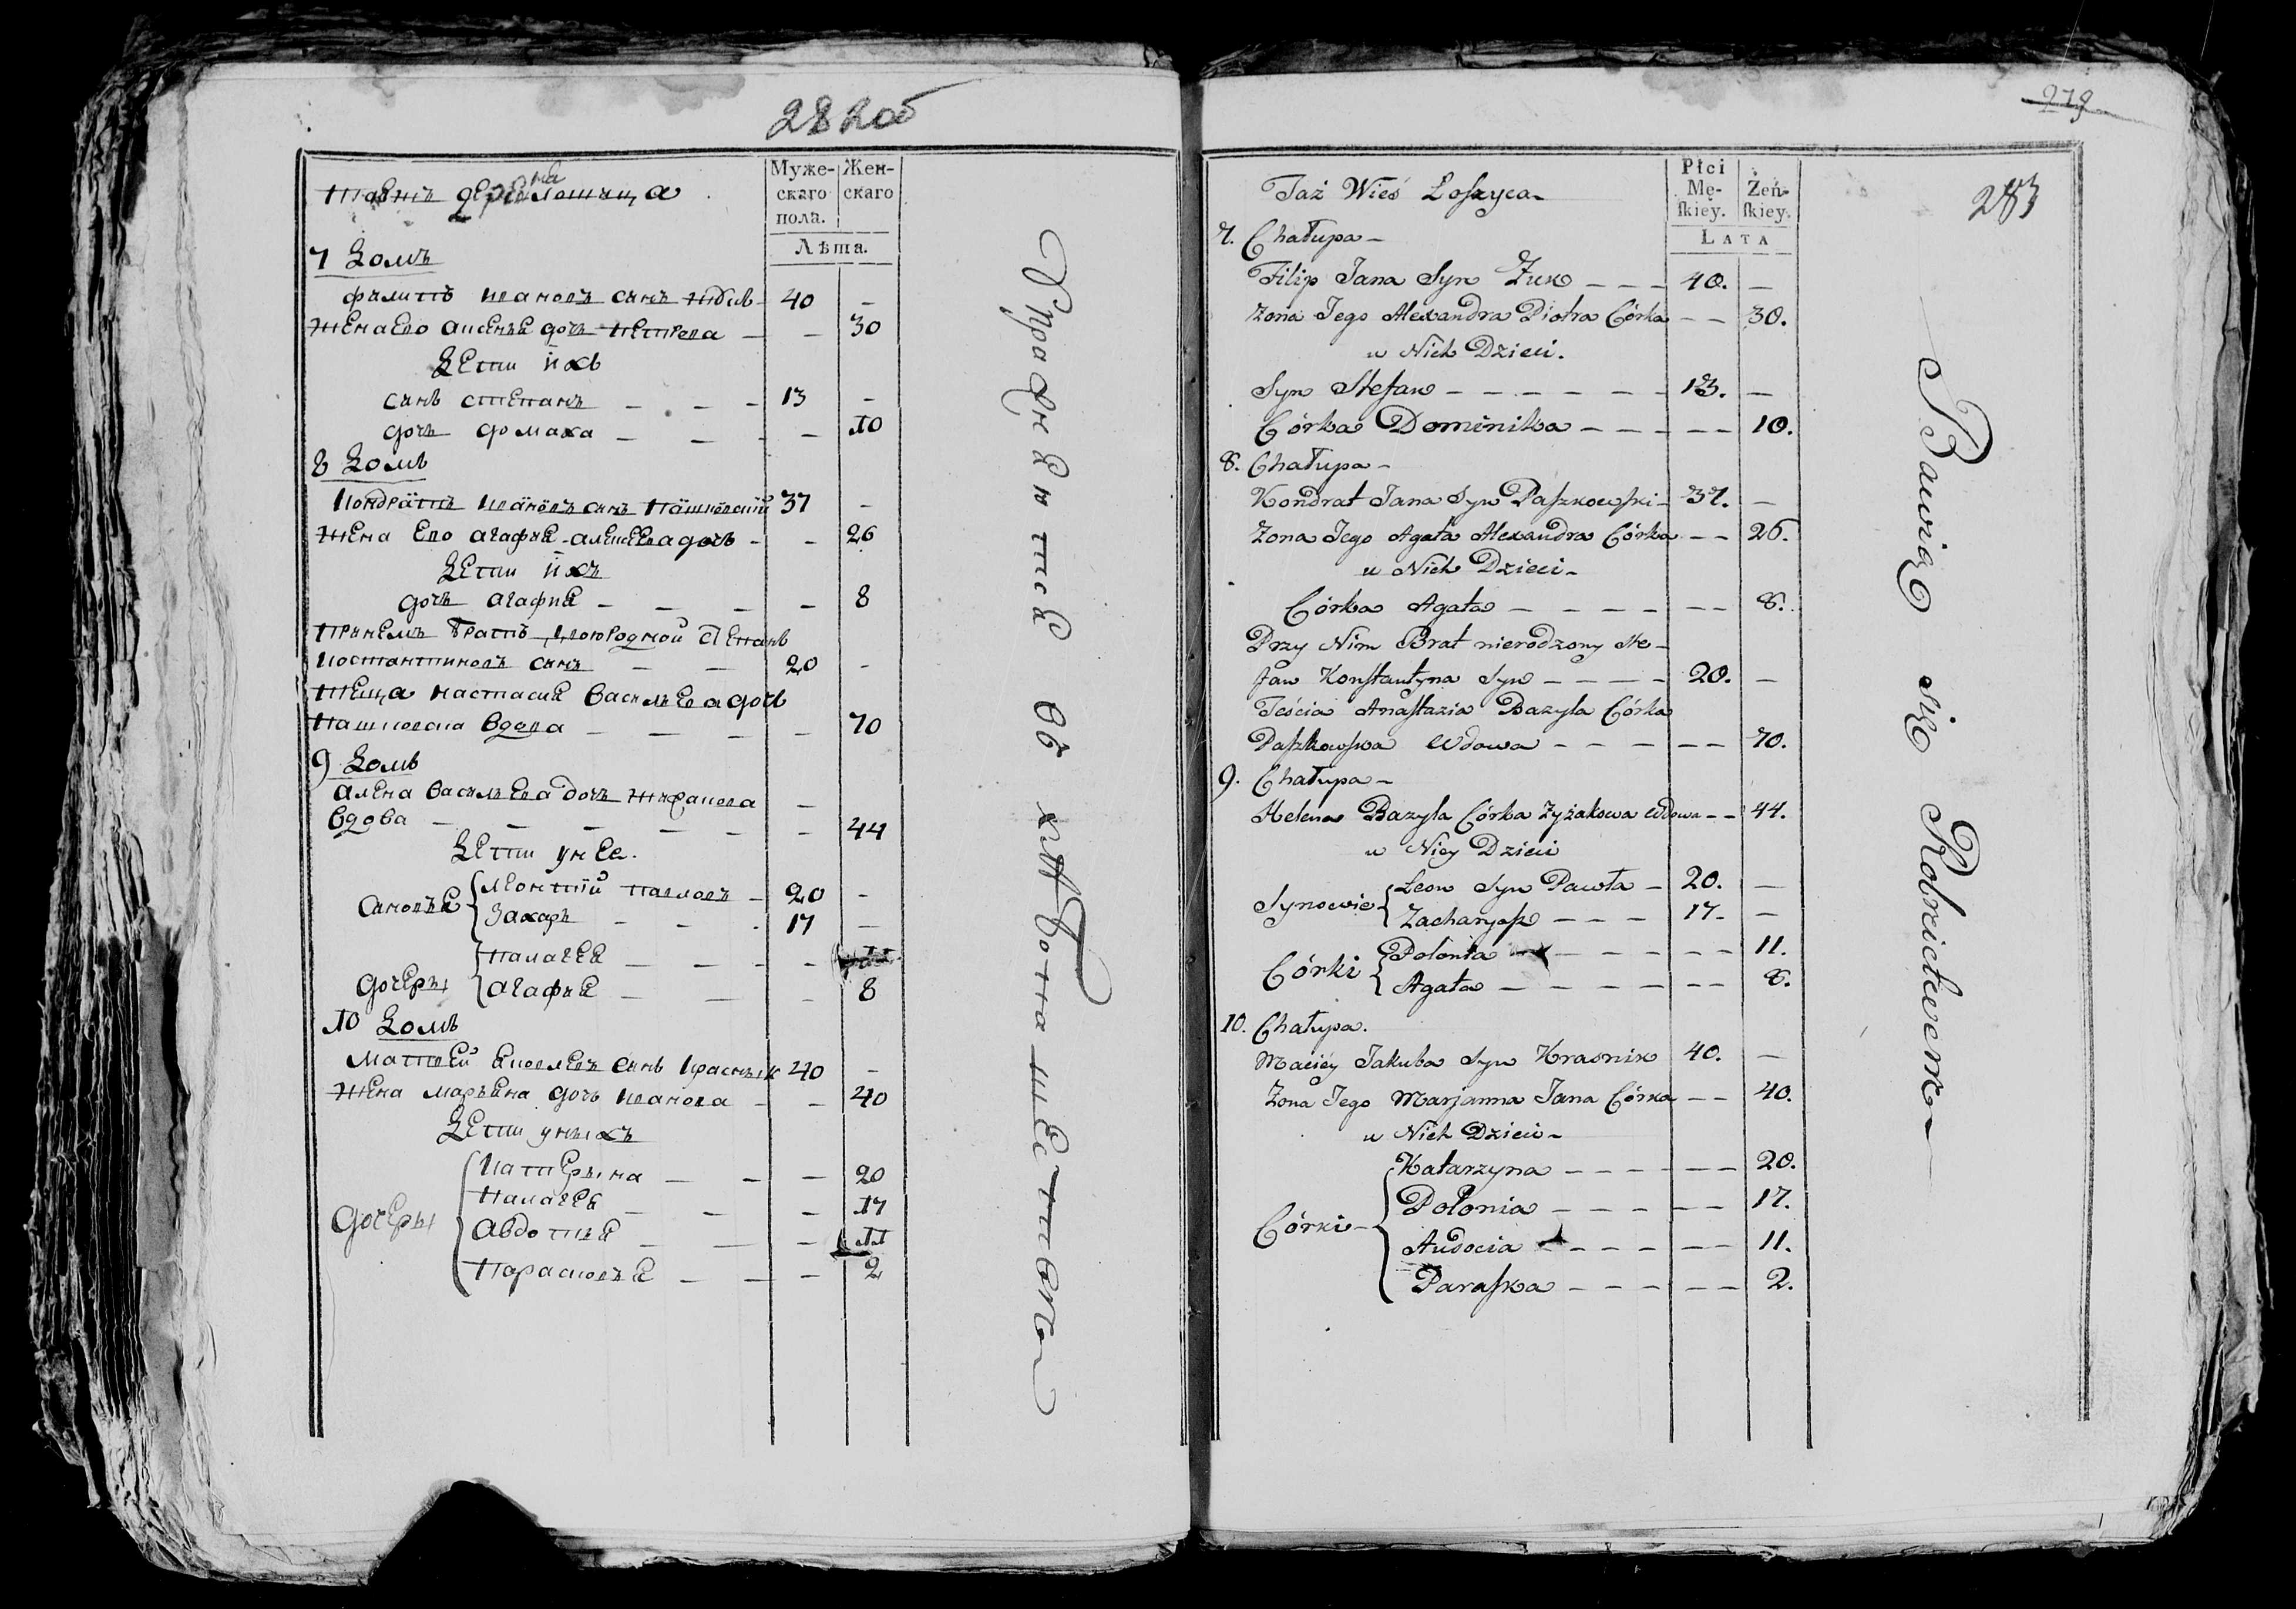 282об
таежъ деревна лошица
Муже-
скаго
пола.
Жен-
скаго
Лѣта.
7 Домъ
Филипъ Ивановъ сынъ Жукъ 40 —
жена Ево Аксенья дочь Петрова — — 30
Дети ихъ
сынъ степанъ — — — 13 —
дочь домаха — — — — 10
8 Домъ
Кондратъ Ивановъ сынъ Пашковскии 37 —
Жена Ево агафия алексеева дочь — — 26
Дети ихъ
дочь агафия — — — — 8
принемъ братъ степанъ
костантиновъ сынъ — — 20 —
теща настасия васильева дочь
Пашковска вдова — — — — 70
9 Домъ
алена васильева дочь вдова — — — — — — 44
Дети у нее.
сыновья { леонтии павловъ — 20 —
захаръ — — . 17 —
дочеры { палагея — — — —
агафия — — — 8
10 Домъ
Матвеи сынъ красникъ 40 —
жена марьяна дочь иванова — — 40
Дети у нихъ
дочеры { катерына — — — 20
палагея — — — 17
авдотия — — — 11
парасковья — — — 2
упражняются въ хлѣбопашествомъ
279
283
Taż Wieś Łoszyca
Płci
Mę-
skiey.
Żeń-
skiey.
LATA
7. Chałupa —
Filip Jana Syn Żuk — — — 40. —
Żona Jego Alexandra Piotra Córka — — 30.
u Nich Dzieci.
Syn Stefan — — — — — — 13. —
Córka Dominika — — — — — 10.
8. Chałupa —
Kondrat Jana Syn Paszkowski — 37. —
Żona Jego Agata Alexandra Córka — — 26.
u Nich Dzieci —
Córka Agata — — — — — — 8.
Przy Nim Brat nierodzony Ste-
fan Konstantyna Syn — — — — 20. —
Teścia Anastazia Bazyla Córka
Paszkowska Wdowa — — — — — — 70.
9. Chałupa —
Helena Bazyla Córka Żyżakowa Wdowa — — 44.
u Niey Dzieci
Synowie { Leon Syn Pawła — 20. —
Zacharyasz — — — 17. —
Córki { Polonia — — — — — — 11.
Agata — — — — — — — 8.
10. Chałupa.
Maciey Jakuba Syn Krasnik 40. —
Żona Jego Marjanna Jana Córka — — 40.
u Nich Dzieci —
Córki — { Katarzyna — — — — — — 20.
Połonia — — — — — — 17.
Audocia — — — — — — 11.
Paraska — — — — — — 2.
Bawią się Robnictwem